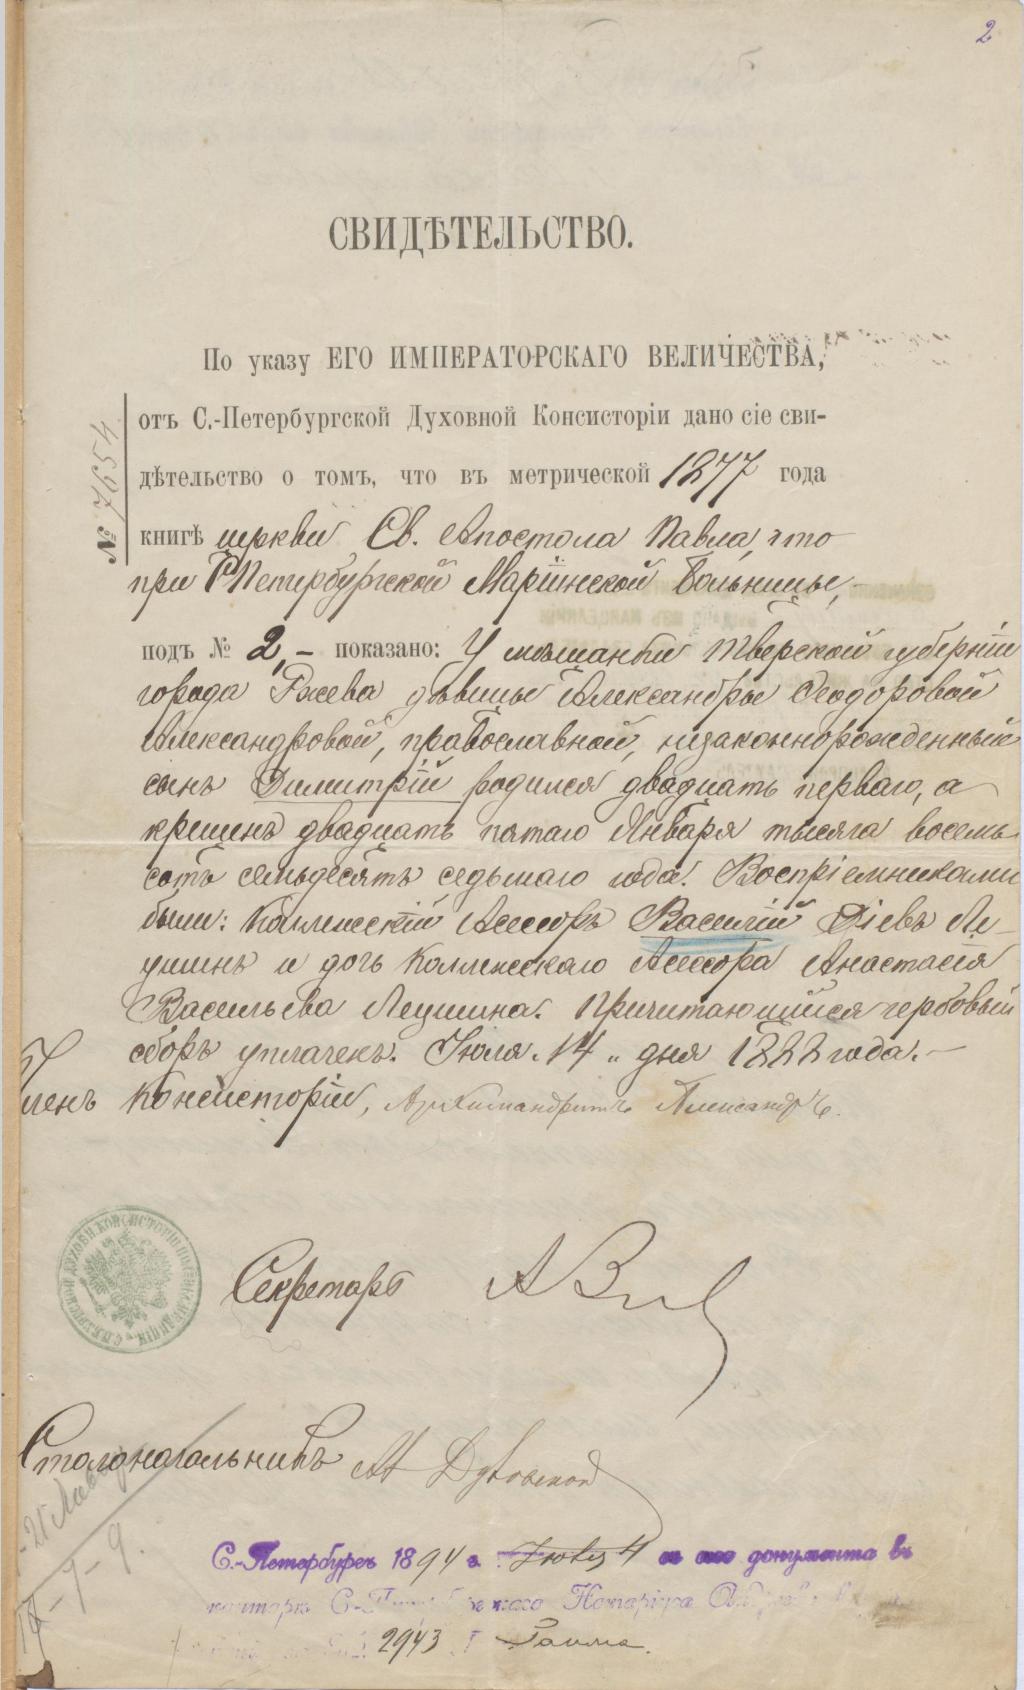 2
СВИДѢТЕЛЬСТВО.
По указу ЕГО ИМПЕРАТОРСКАГО ВЕЛИЧЕСТВА,
отъ С.-Петербургской Духовной Консисторіи дано сіе сви-
дѣтельство о томъ, что въ метрической 1877 года
№ 7654
книгѣ церкви Св. Апостола Павла, что
при СПетербургской Маріинской больницѣ,
подъ № 2,– показано: У мѣщанки Тверской губерніи
города Ржева дѣвицы Александры Ѳеодоровой
Александровой, православной, незаконнорожденный
сынъ Димитрій родился двадцать перваго, а
крещенъ двадцать пятаго Января тысяча восемь
сотъ семьдесятъ седьмаго года. Воспріемниками
были: Коллежскій Асессоръ Василій Діевъ Ле-
ушинъ и дочь Коллежскаго Асессора Анастасія
Васильева Леушина. Причитающійся гербовый
сборъ уплаченъ. Іюля 14 „ дня 1888 года.–
Членъ Консисторіи, Архимандритъ Александръ.
Секретарь
Столоначальникъ
С.-Петербургъ 1894 г. документа въ
конторѣ С.-Петербургскаго Нотаріуса
2943